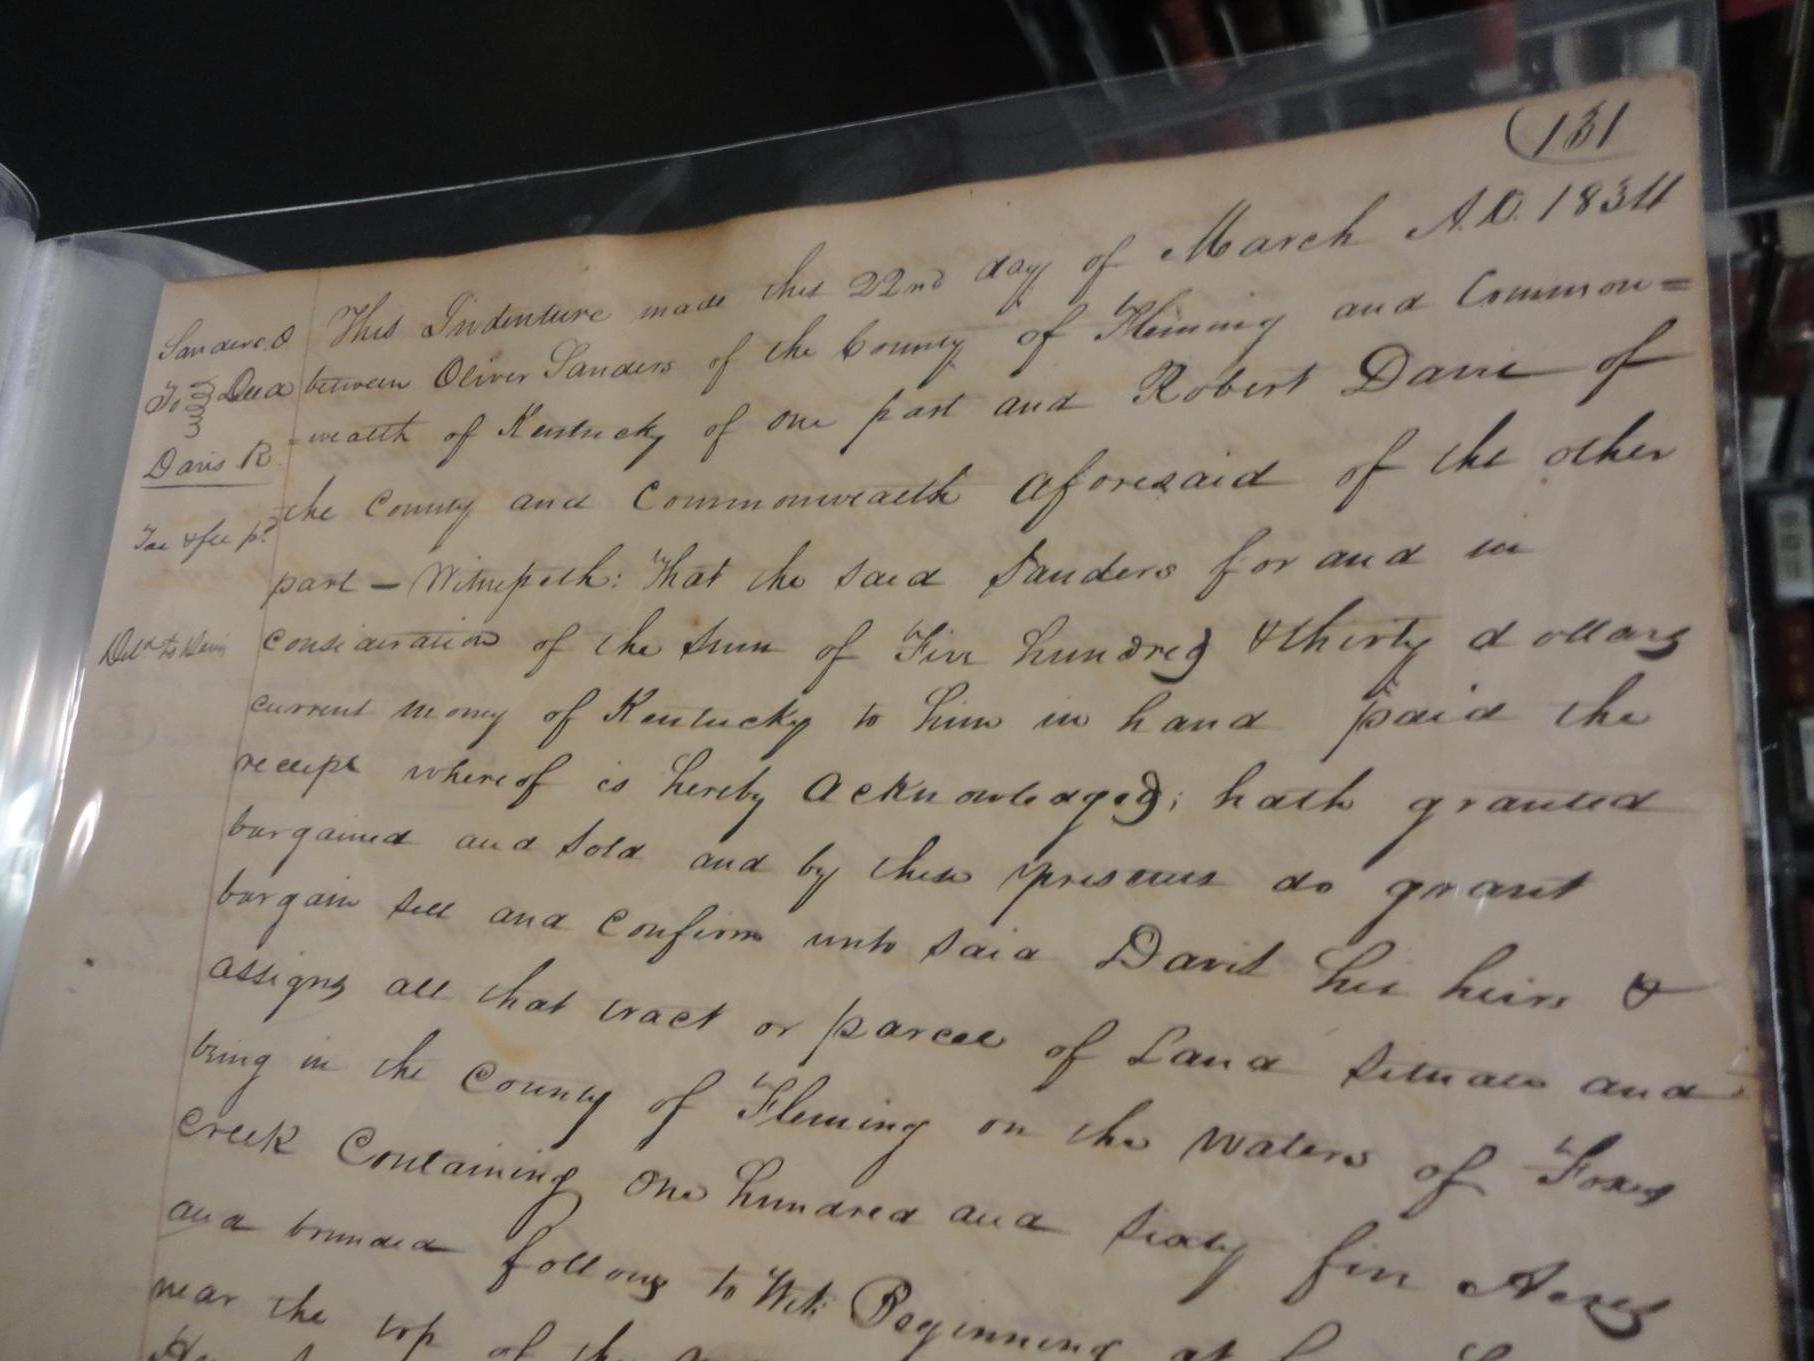 131
This Indenture made this 22nd day of March A.D. 1834
between Oliver Sanders of the County of Fleming and Common=
=wealth of Kentucky of one part and Robert Davis of
the County and Commonwealth aforesaid of the other
part - Witnesseth: That the said Sanders for and in
consideration of the sum of Five hundred & thirty dollars
current money of Kentucky to him in hand paid the
receipt whereof is hereby acknowledged; hath granted
bargained and sold and by these presents do grant
bargain sell and confirm unto said Davis his heirs &
assigns all that tract or parcel of Land situate and
being in the County of Fleming on the waters of Foxes
Creek Containing One hundred and sixty five Acres
and bounded follows to Wit: Beginning at
near the top of the
Sanders. O
To Deed
Davis R
Tax & fee pd
Deld to Davis